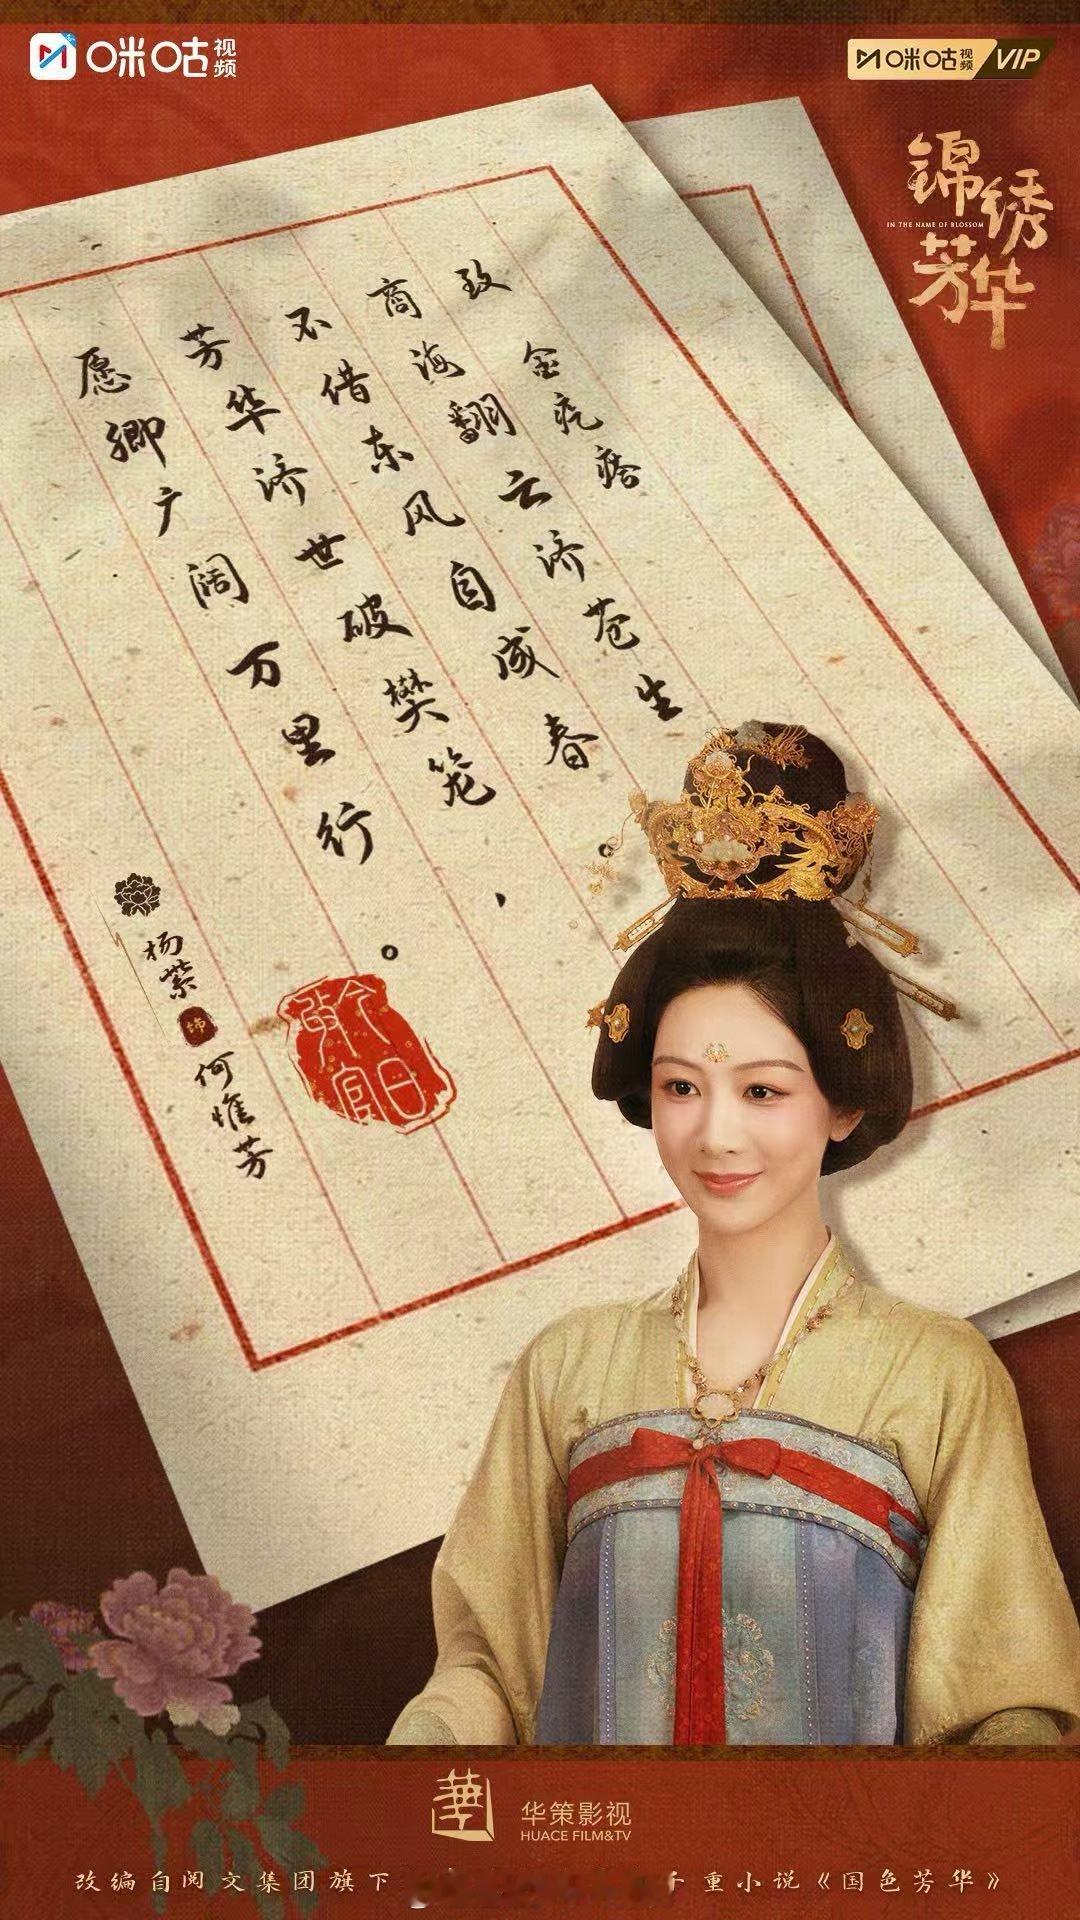 咪咕视频
咪咕视频 VIP
锦绣芳华
IN THE NAME OF BLOSSOM
致
金疙瘩
商海翻云济苍生。
不借东风自成春、
芳华济世破樊笼。
愿卿广阔万里行
杨紫
饰
何惟芳
今日
官
華
华策影视
HUACE FILM&TV
改编自阅文集团旗下
千重小说《国色芳华》